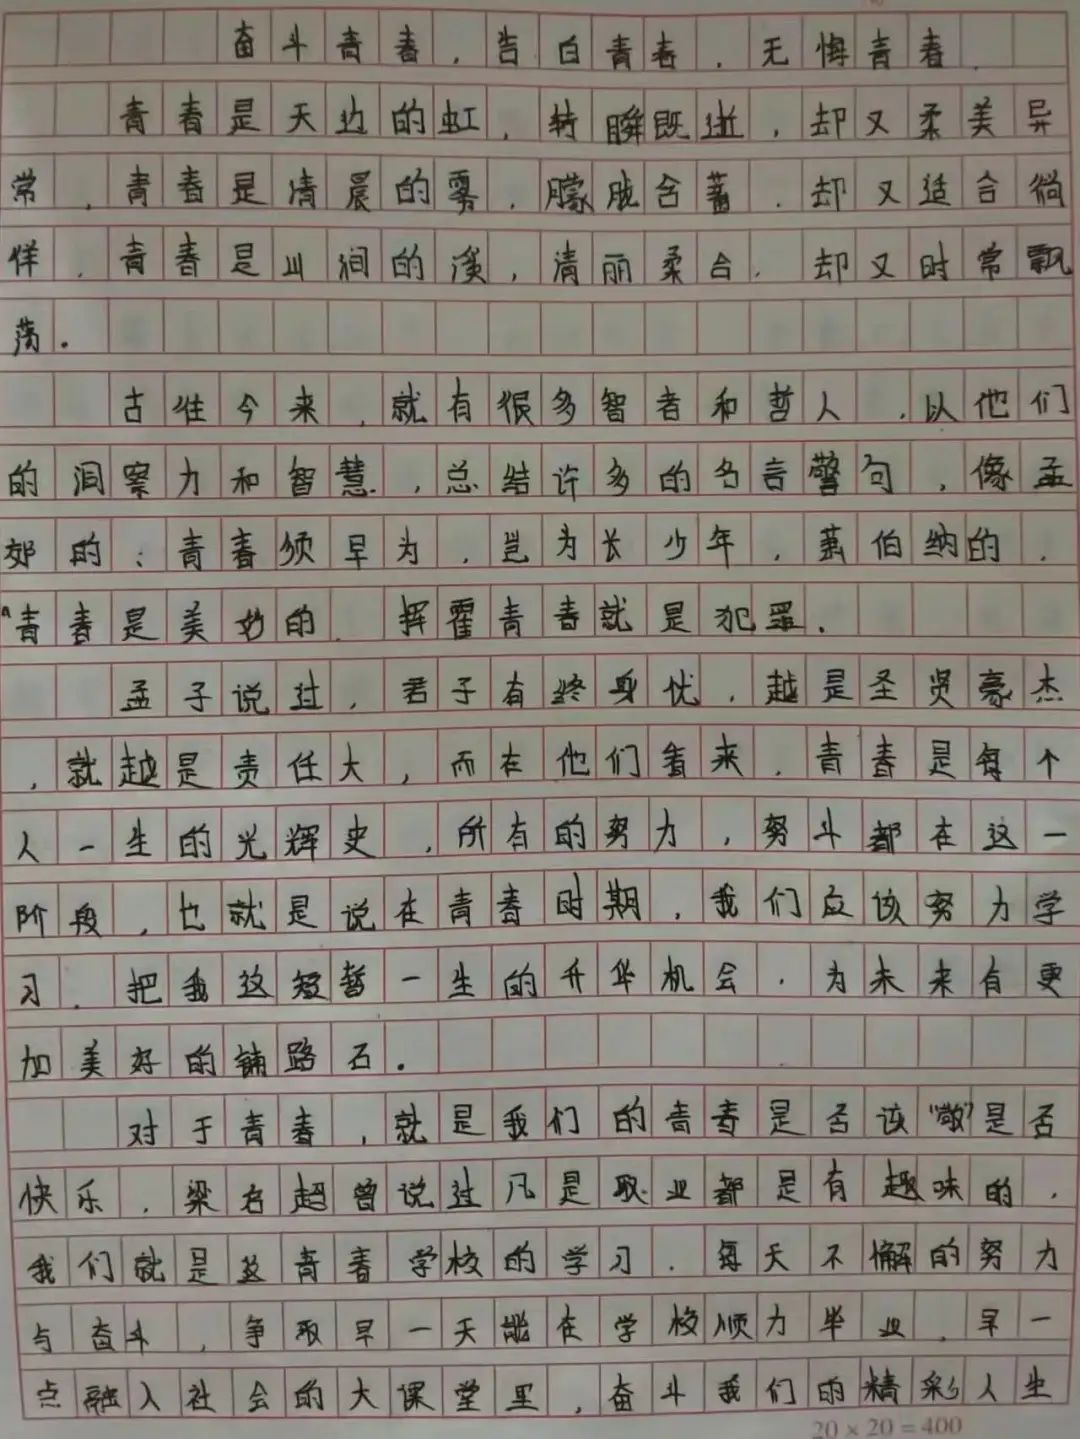 奋斗青春，告白青春，无悔青春，
青春是天边的虹，转瞬既逝，却又柔美异
常，青春是清晨的雾，朦胧含蓄，却又适合徜
徉，青春是山涧的溪，清丽柔合，却又时常飘
荡。
古往今来，就有很多智者和哲人，以他们
的洞察力和智慧，总结许多的名言警句，像孟
郊的：青春须早为，岂为长少年，萧伯纳的，
“青春是美妙的，挥霍青春就是犯罪。
孟子说过，君子有终身忧，越是圣贤豪杰
，就越是责任大，而在他们看来，青春是每个
人一生的光辉史，所有的努力，努斗都在这一
阶段，也就是说在青春时期，我们应该努力学
习，把我这短暂一生的升华机会，为未来有更
加美好的铺路石。
对于青春，就是我们的青春是否该“敬”是否
快乐，梁启超曾说过凡是职业都是有趣味的，
我们就是这青春学校的学习，每天不懈的努力
与奋斗，争取早一天能在学校顺力毕业，早一
点融入社会的大课堂里，奋斗我们的精彩人生
20×20=400